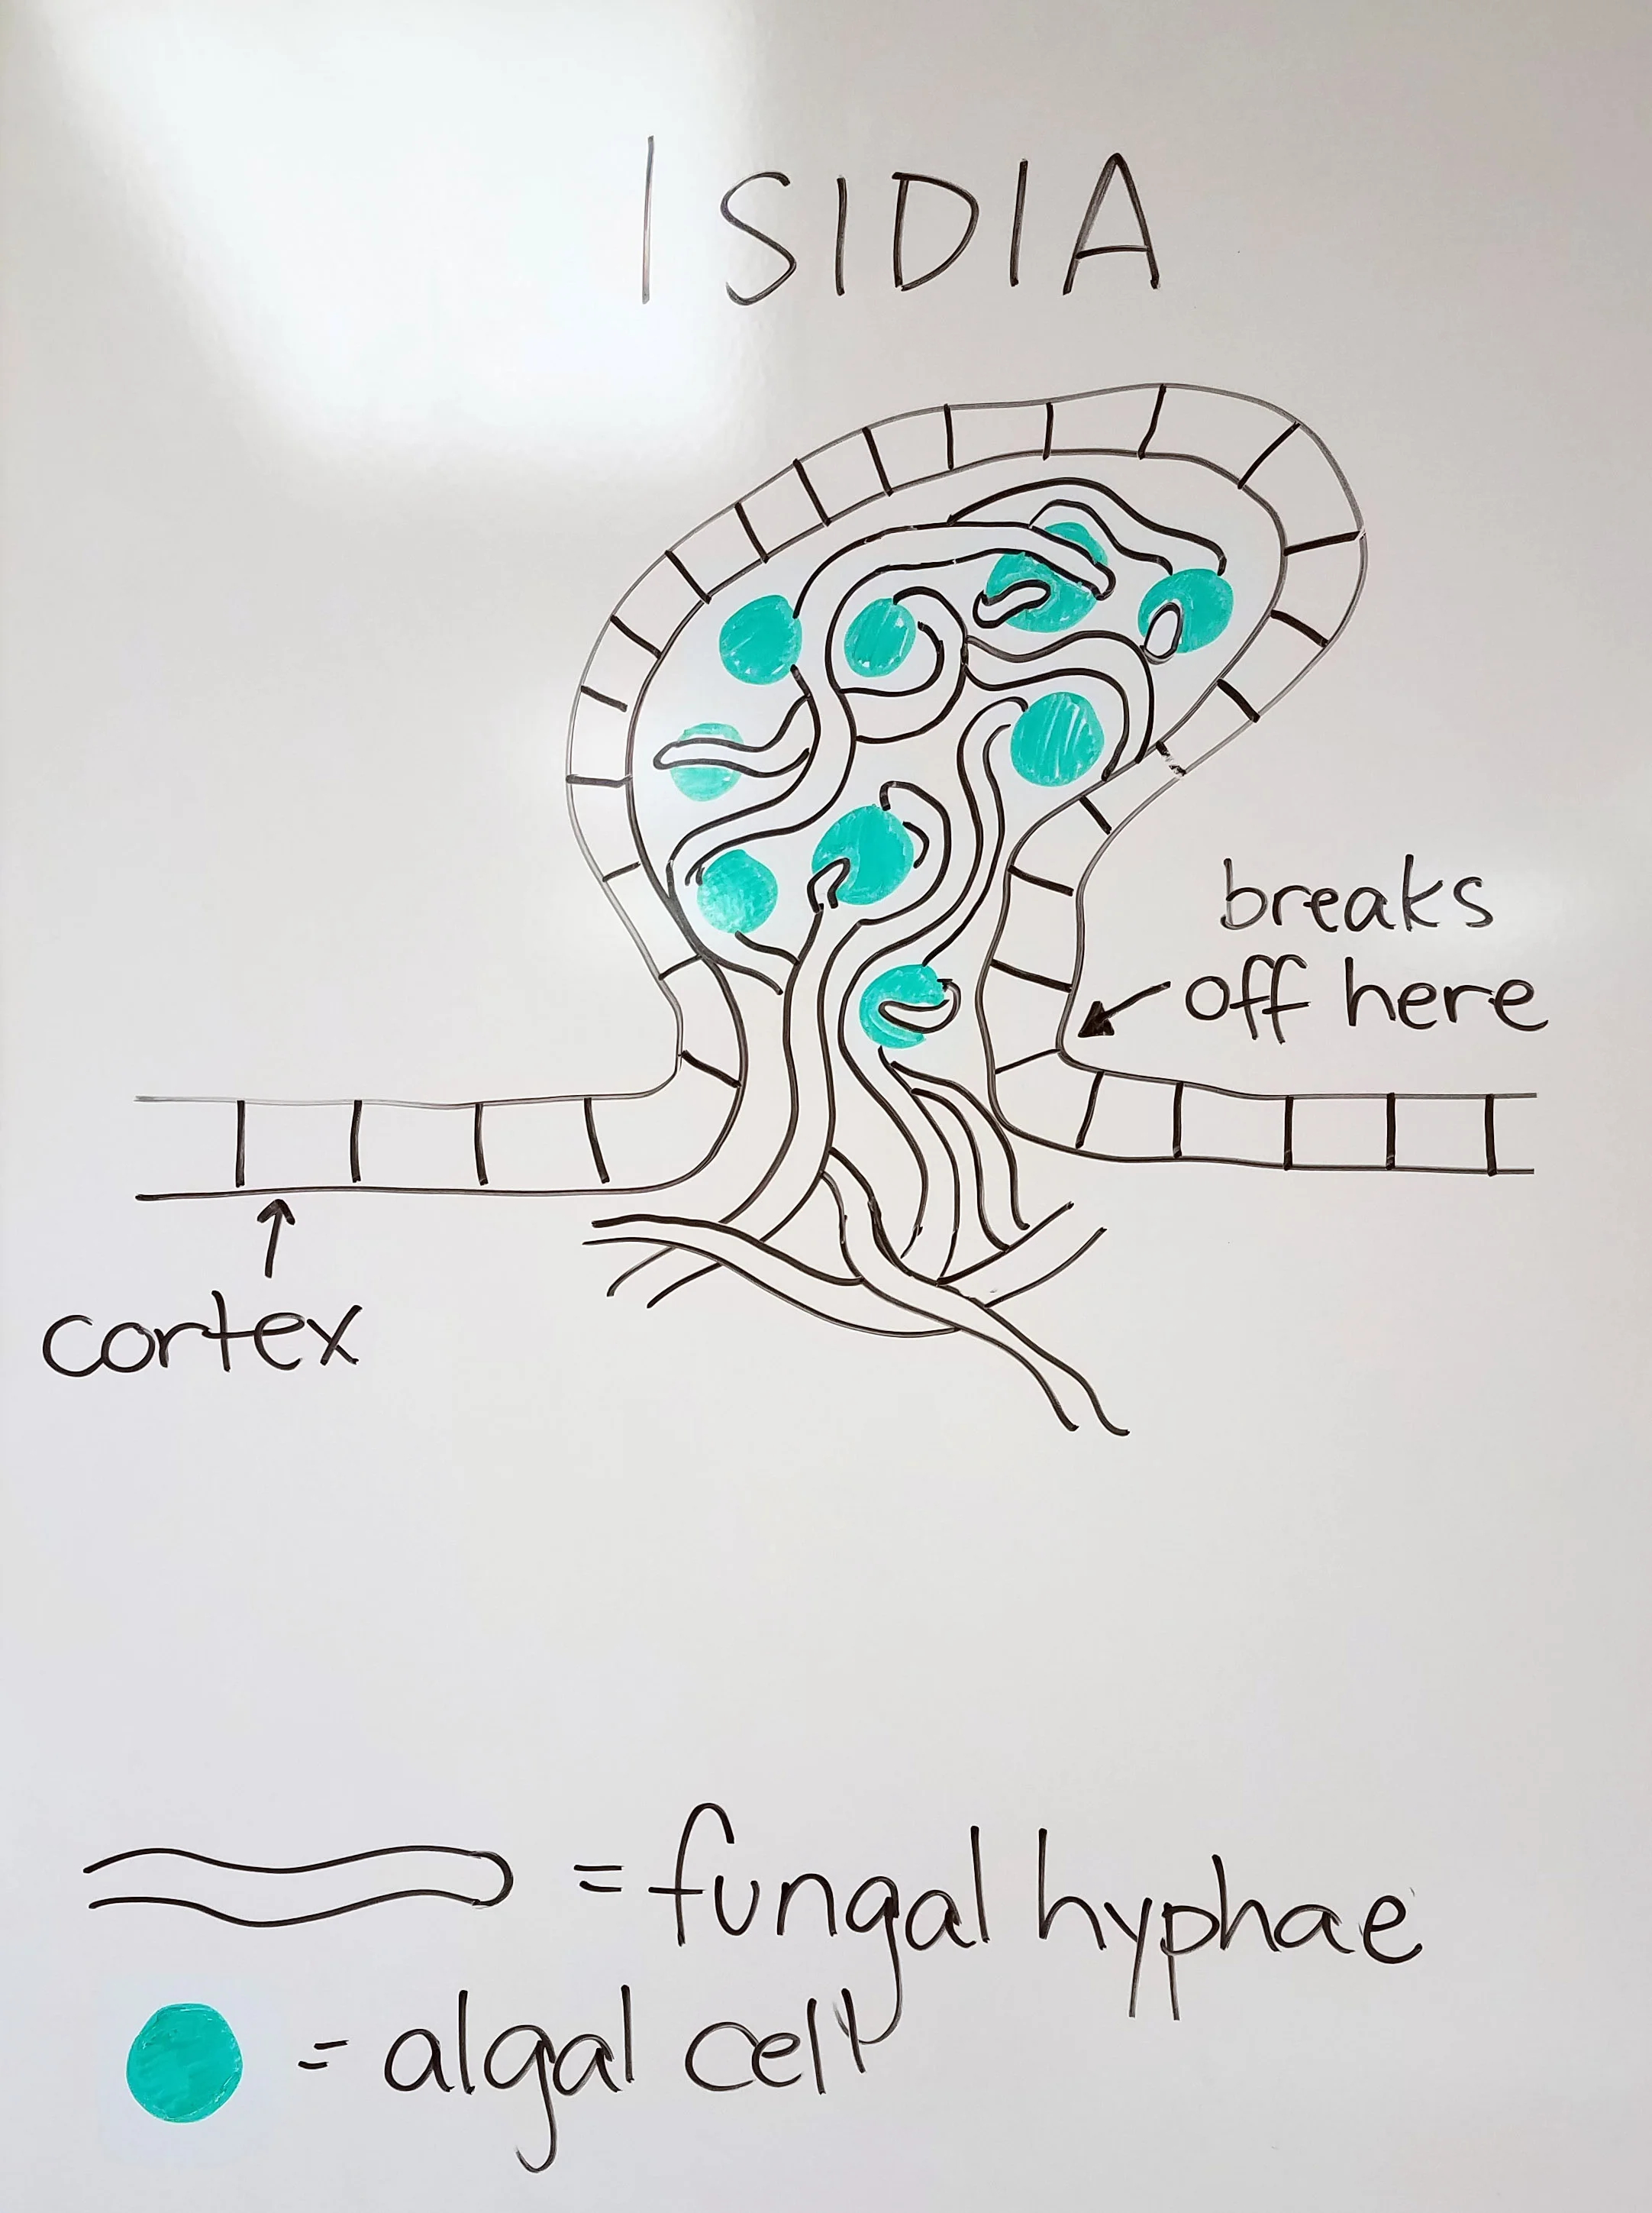 ISIDIA
breaks
off here
cortex
= fungal hyphae
= algal cell